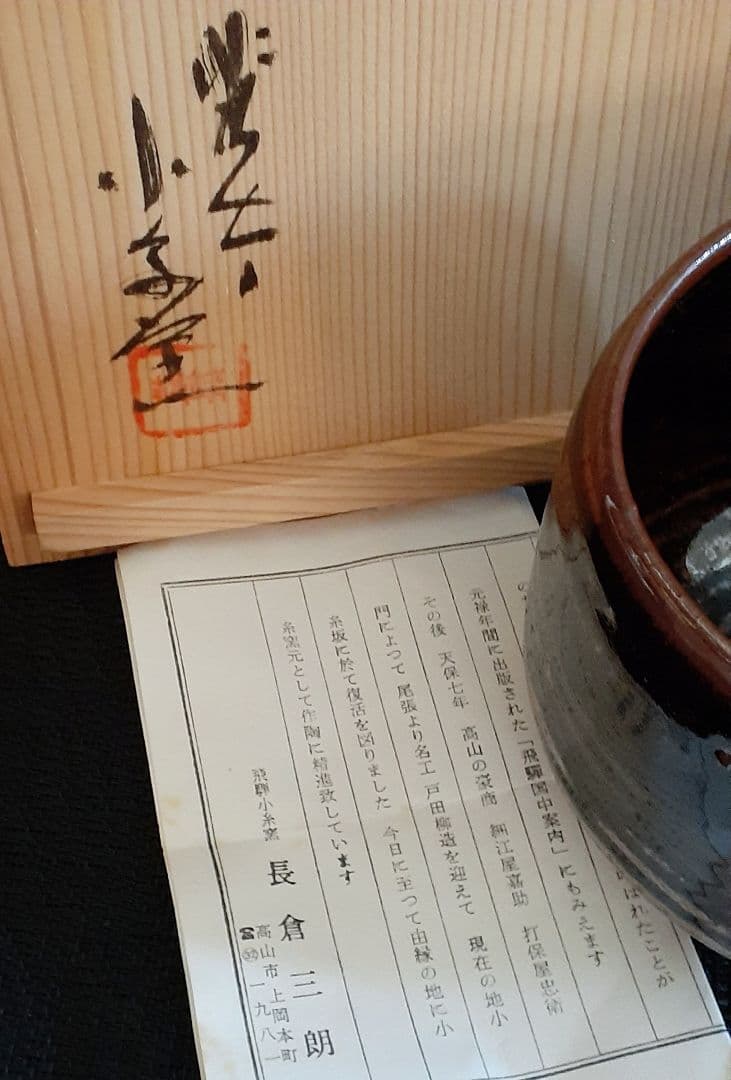 小糸窯
ばれたことが
元禄年間に出版された「飛騨国中案内」にもみえます
その後 天保七年 高山の豪商 細江屋嘉助 打保屋忠衛
門によって 尾張より名工 戸田柳造を迎えて 現在の地小
糸坂に於て復活を図りました 今日に至つて由縁の地に小
糸窯元として作陶に精進致しています
飛騨小糸窯 長倉三朗
高山市上岡本町
一九八一